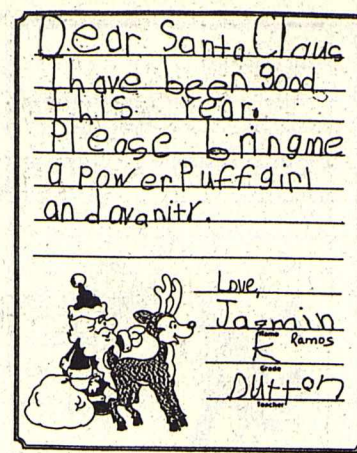 Dear Santa Claus
I have been good
this Year.
Please bringme
a PowerPuffgirl
andavanity.
Love,
Jazmin
Name Ramos
K
Grade
Dutton
Teacher